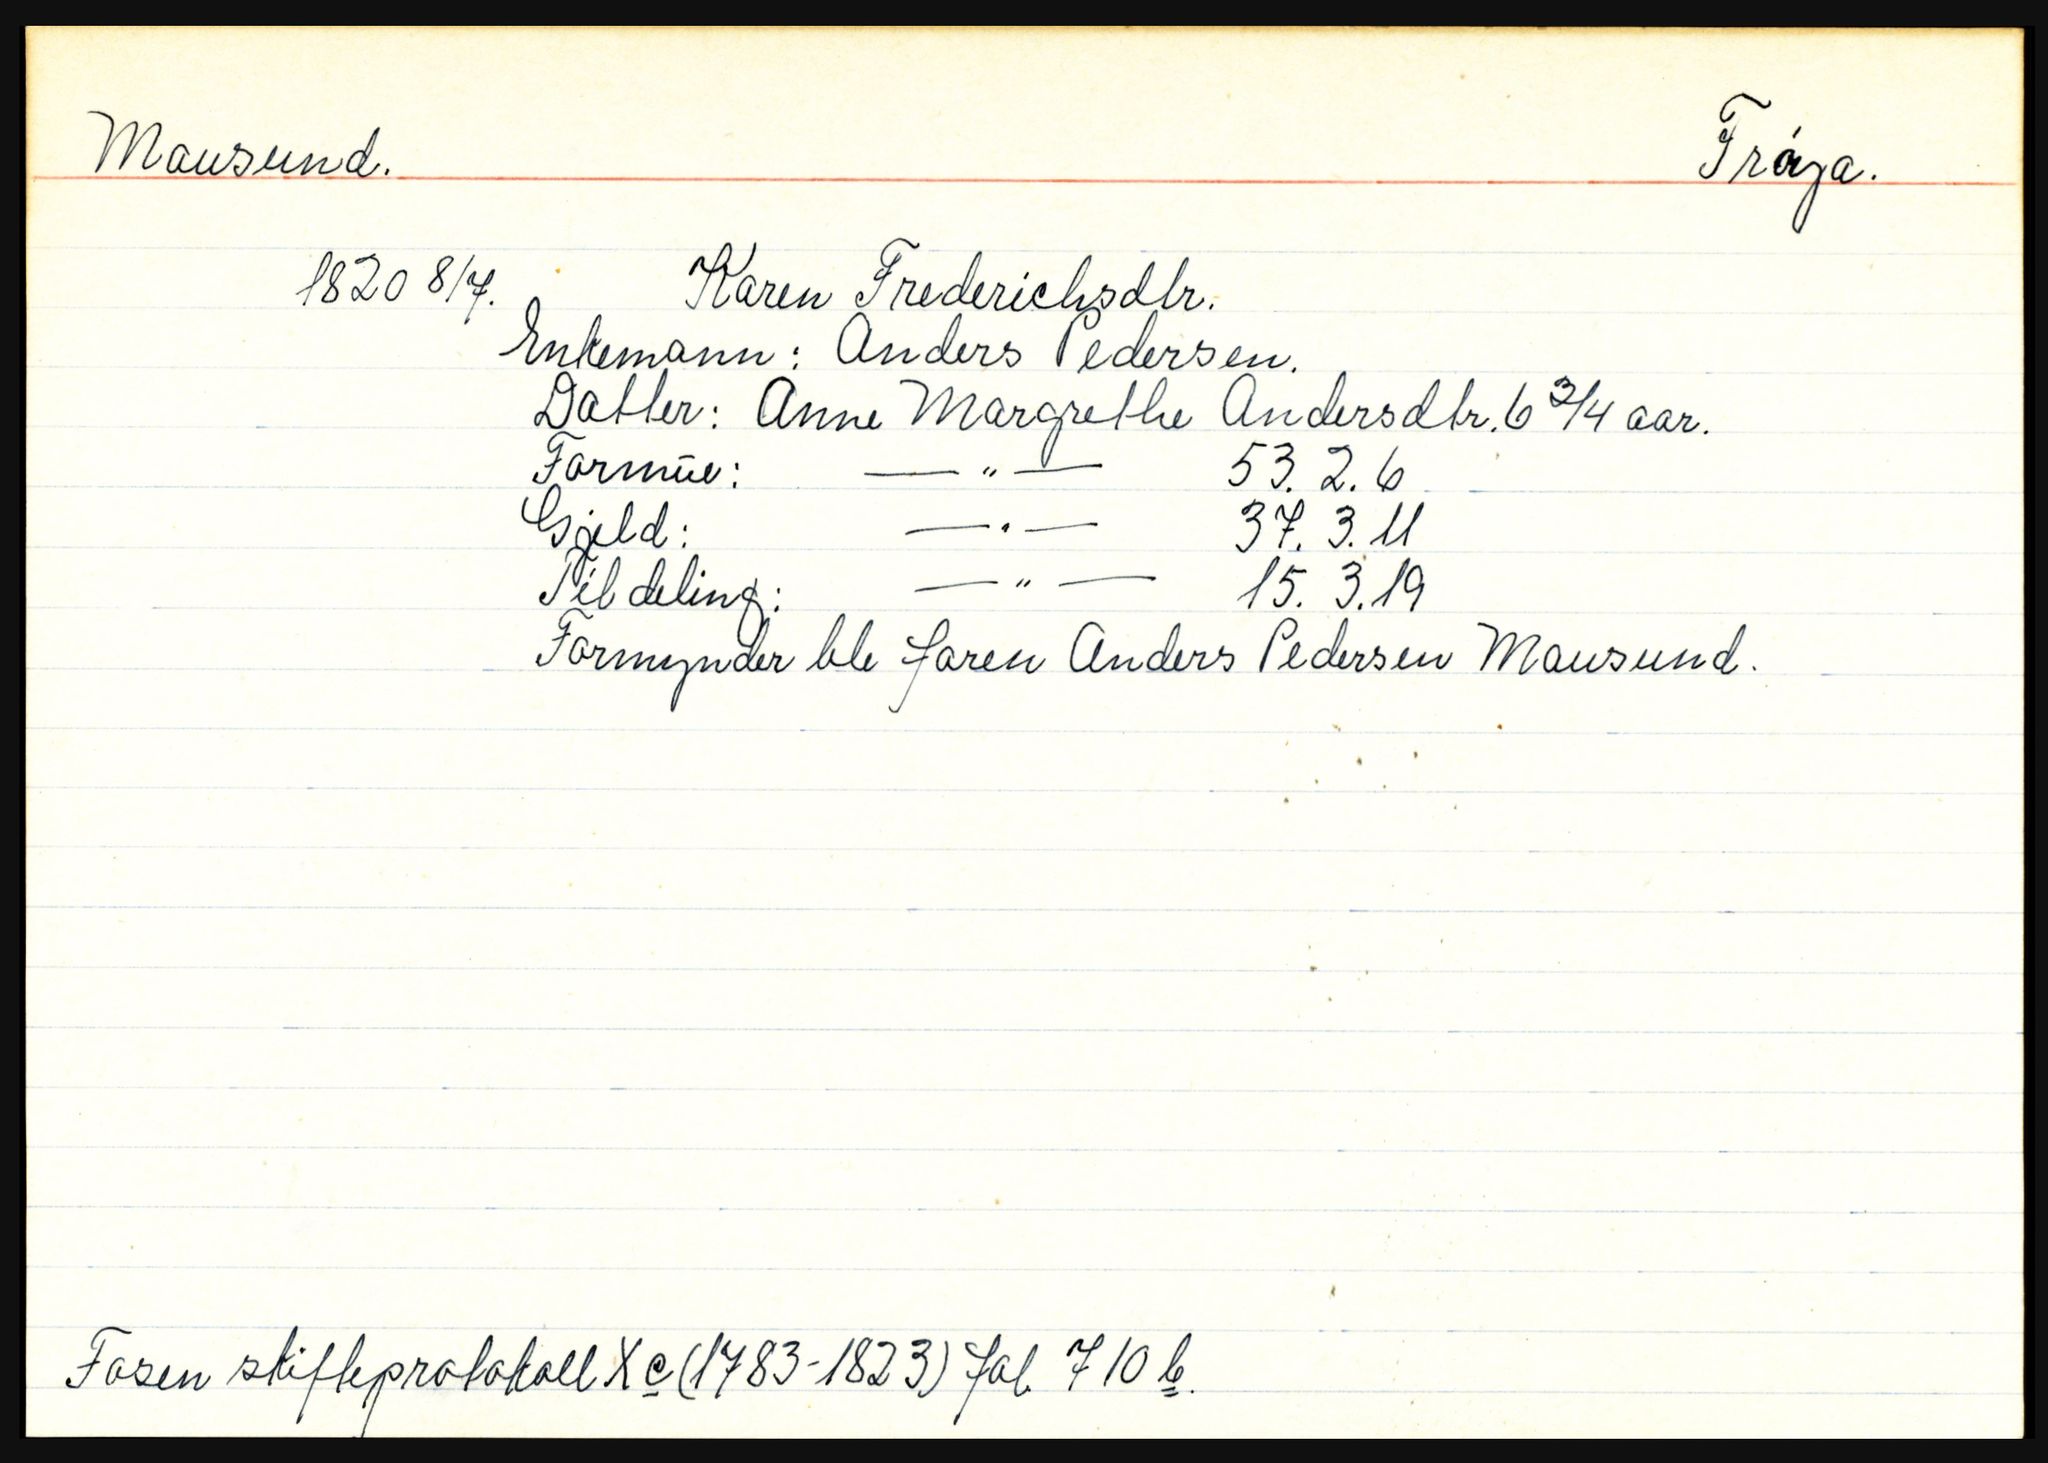 Mausund. Frøya.
1820 8/7. Karen Frederichsdtr.
Enkemann: Anders Pedersen.
Datter: Anne Margrethe Andersdtr. 6 3/4 aar.
Formue: — " — 53. 2. 6
Gjeld: — " — 37. 3. 11
Til deling: — " — 15. 3. 19
Formynder ble faren Anders Pedersen Mausund.
Fosen skifteprotokoll X c (1783-1823) fol. 710 b.